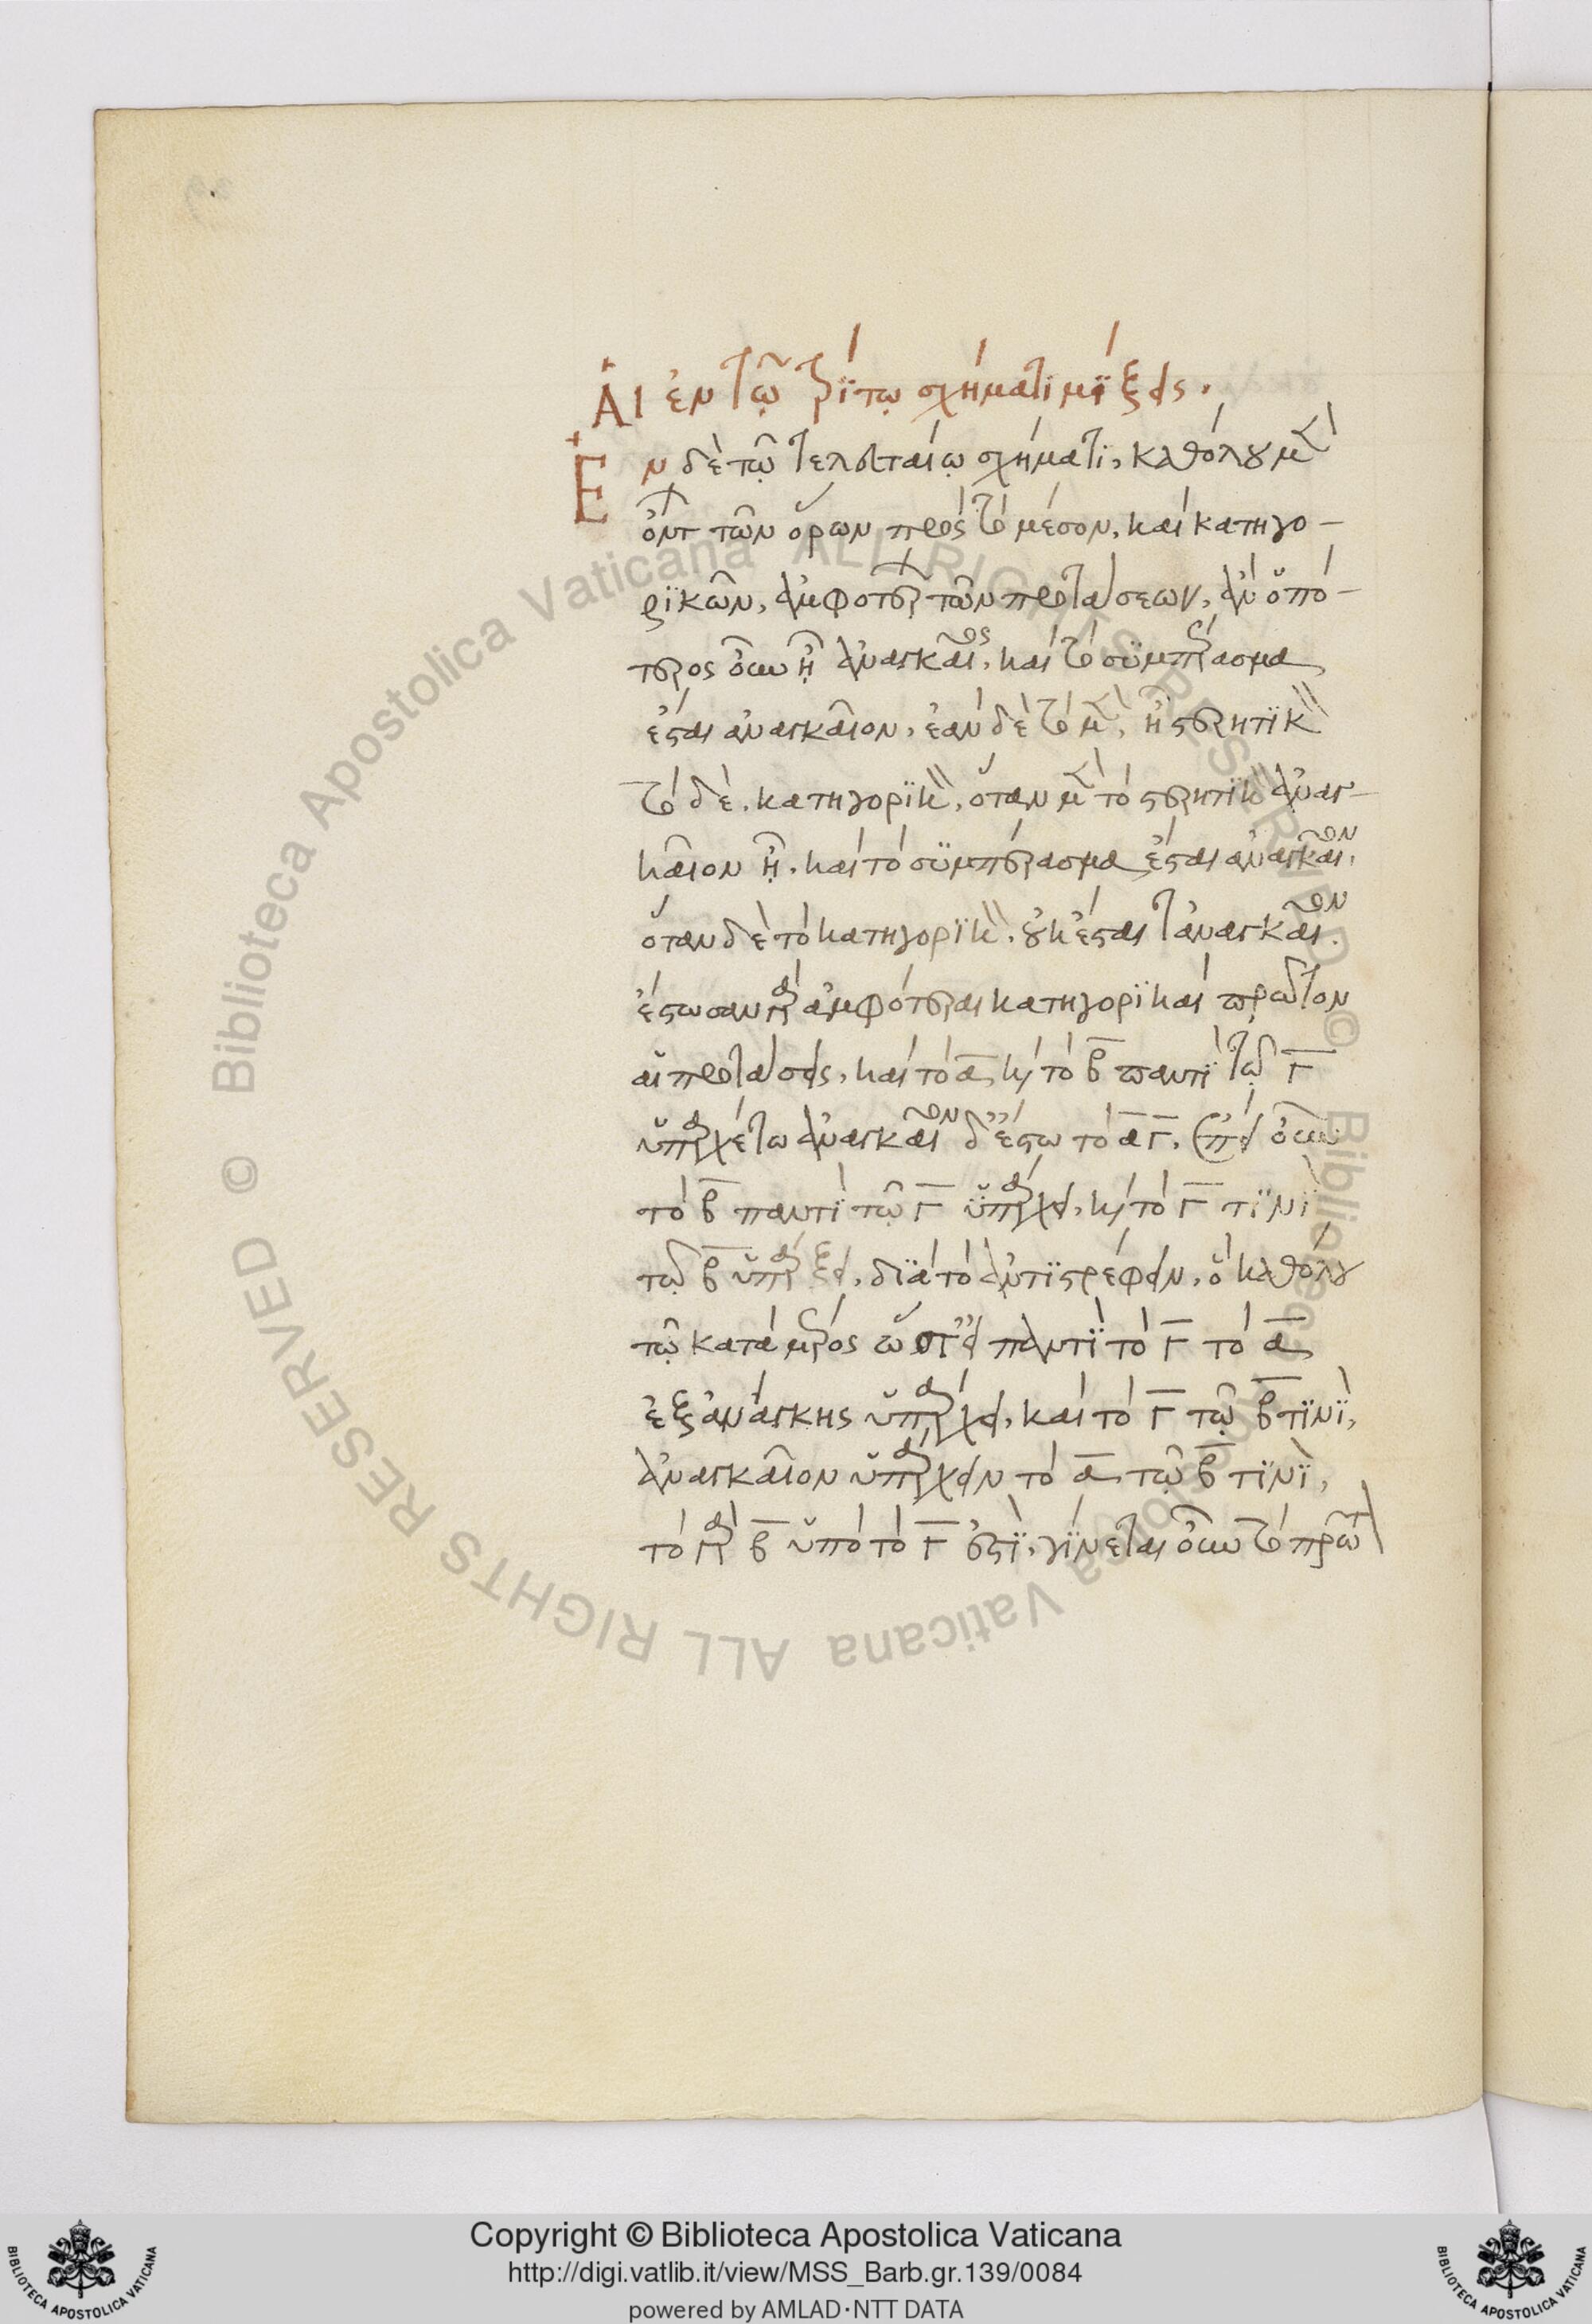 Αἱ ἐν τῷ τρίτῳ σχήματι μίξεις.
Ἐν δὲ τῷ τελευταίῳ σχήματι, καθόλου μὲν
ὄντων τῶν ὅρων πρὸς τὸ μέσον, καὶ κατηγο-
ρικῶν, ἀμφοτέρων τῶν προτάσεων, ἂν ὁπό-
τερος οὖν ᾖ ἀναγκαῖος, καὶ τὸ συμπέρασμα
ἔσται ἀναγκαῖον, ἐὰν δὲ τὸ μὲν, ᾖ στερητικὸν
τὸ δὲ, κατηγορικὸν, ὅταν μὲν τὸ στερητικὸν ἀναγ-
καῖον ᾖ, καὶ τὸ συμπέρασμα ἔσται ἀναγκαῖον,
ὅταν δὲ τὸ κατηγορικὸν, οὐκ ἔσται ἀναγκαῖον.
ἔστωσαν γὰρ ἀμφότεραι κατηγορικαὶ πρῶτον
αἱ προτάσεις, καὶ τὸ α, καὶ τὸ β παντὶ τῷ γ
ὑπαρχέτω ἀναγκαῖον δ' ἔστω τὸ α γ, ἐπεὶ οὖν
τὸ β παντὶ τῷ γ ὑπάρχει, καὶ τὸ γ τινὶ
τῷ β ὑπάρξει, διὰ τὸ ἀντιστρέφειν, ὁ καθόλου
τῷ κατὰ μέρος ὥστ' εἰ παντὶ τὸ γ τὸ α
ἐξ ἀνάγκης ὑπάρχει, καὶ τὸ γ τῷ β τινὶ,
ἀναγκαῖον ὑπάρχειν τὸ α τῷ β τινὶ,
τὸ γὰρ β ὑπὸ τὸ γ ἐστὶ, γίνεται οὖν τὸ πρῶτον
Copyright © Biblioteca Apostolica Vaticana
http://digi.vatlib.it/view/MSS_Barb.gr.139/0084
powered by AMLAD·NTT DATA
BIBLIOTECA APOSTOLICA VATICANA
BIBLIOTECA APOSTOLICA VATICANA
© Biblioteca Apostolica Vaticana ALL RIGHTS RESERVED
© Biblioteca Apostolica Vaticana ALL RIGHTS RESERVED